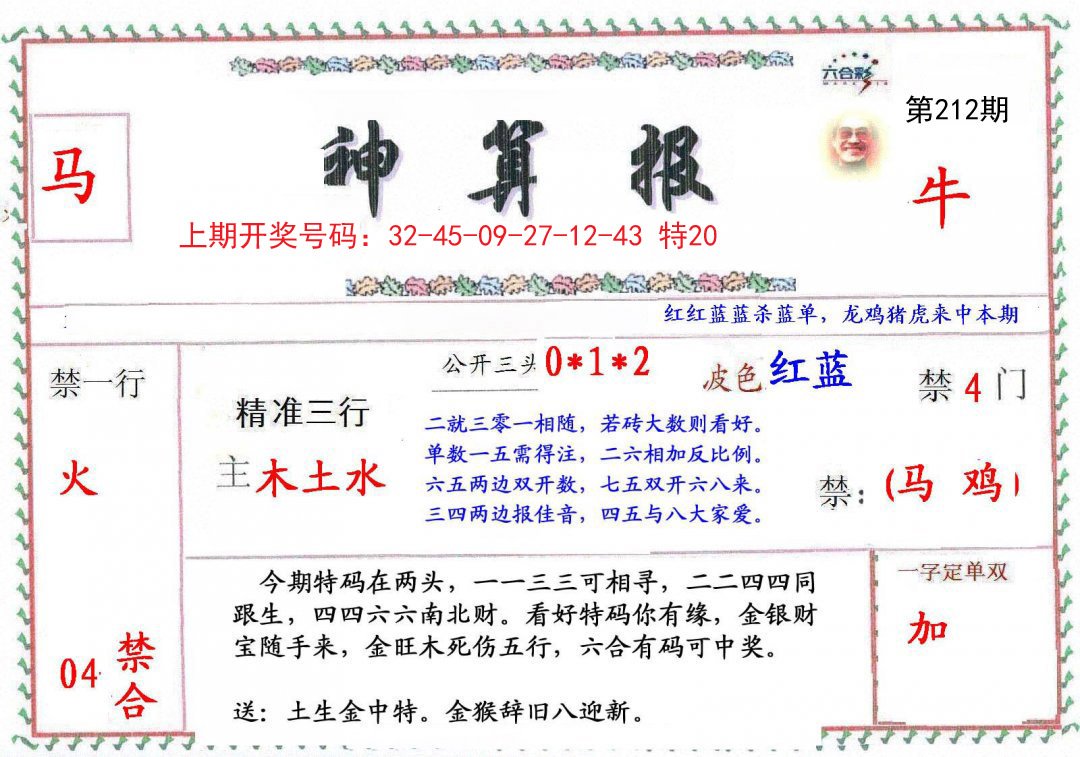 六合彩
第212期
马
神算报
牛
上期开奖号码：32-45-09-27-12-43 特20
红红蓝蓝杀蓝单，龙鸡猪虎来中本期
禁一行
公开三头
0*1*2
波色
红蓝
禁4门
精准三行
二就三零一相随，若砖大数则看好。
单数一五需得注，二六相加反比例。
六五两边双开数，七五双开六八来。
三四两边报佳音，四五与八大家爱。
火
主木土水
禁：(马 鸡)
今期特码在两头，一一三三可相寻，二二四四同
跟生，四四六六南北财。看好特码你有缘，金银财
宝随手来，金旺木死伤五行，六合有码可中奖。
送：土生金中特。金猴辞旧八迎新。
一字定单双
加
04
禁合